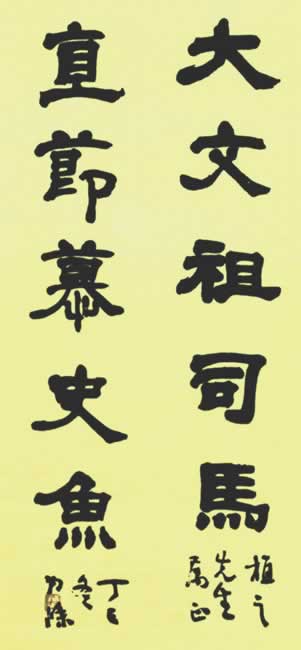 大文祖司馬
植之
先生
属正
直節慕史魚
丁巳
冬